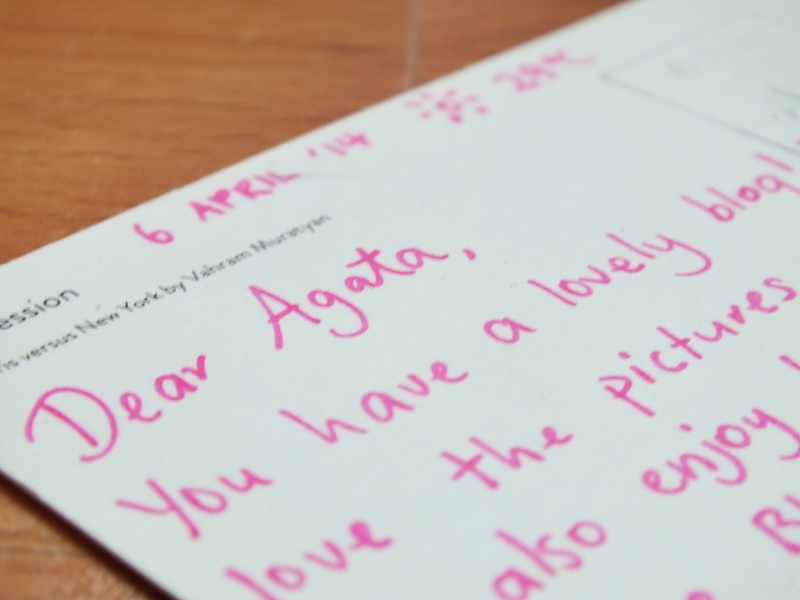 6 APRIL '14 29°C
ession
is versus New York by Vahram Muratyan
Dear Agata,
You have a lovely blog!
love the pictures
also enjoy